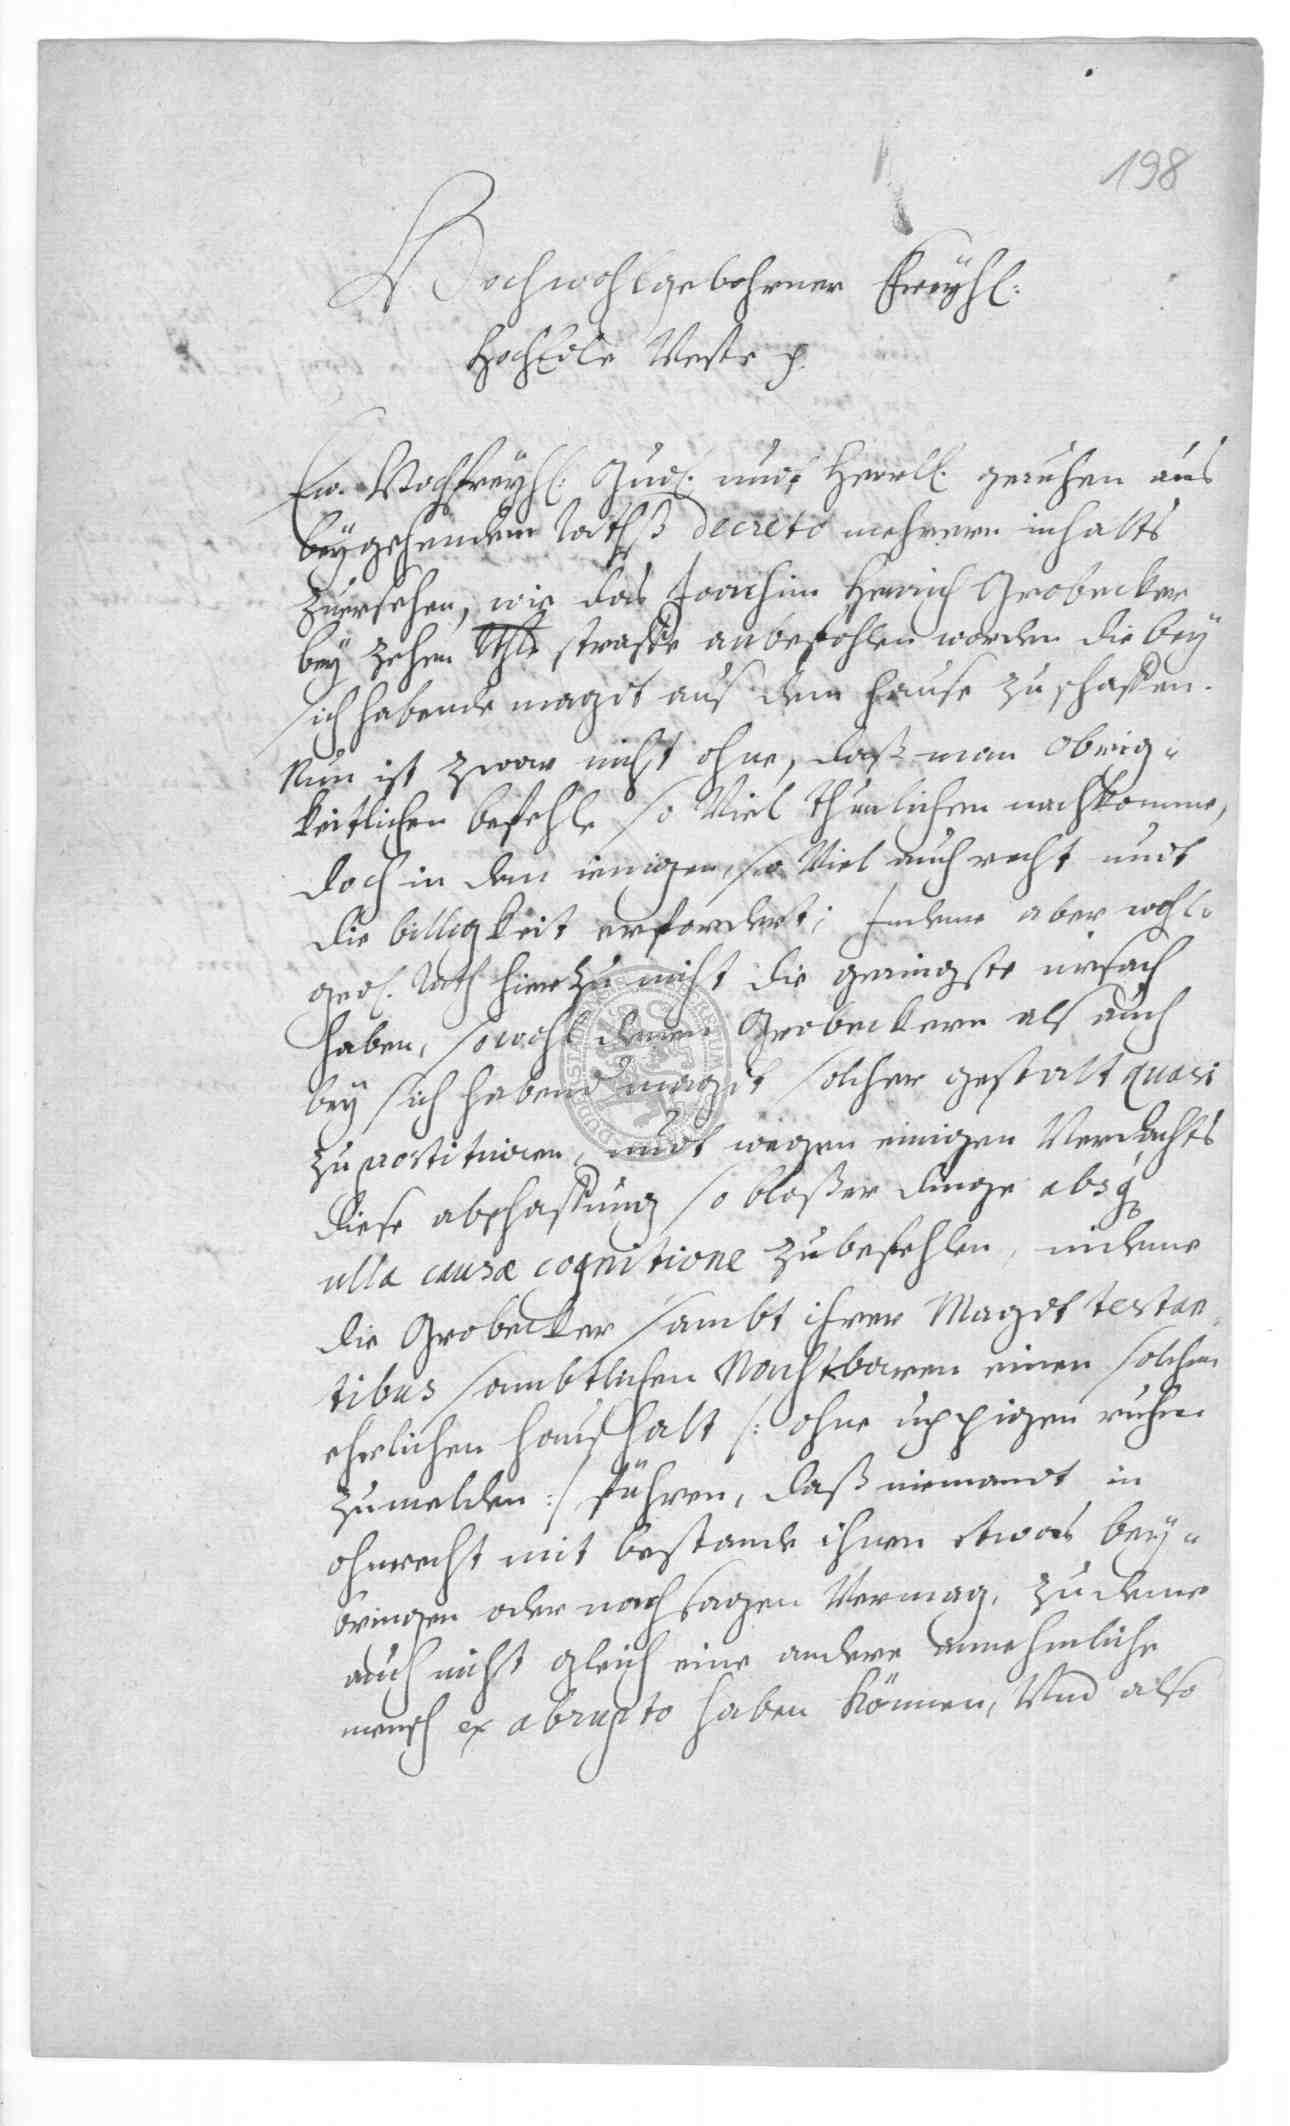 198
Hochwohlgebohrner Freyh:
HochEdle Veste p.
Ew. Hochfreyh: Gnd. undt Herrl. geruhen aus
beygehendem raths decreto mehrern inhalts
zuersehen, wie das Joachim Henrich Grobecker
bey zehen Thlr straffe anbefohlen worden die bey
sich habende magdt aus dem hause zu schaffen.
Nun ist zwar nicht ohne, daß man obrig-
keitlichen befehle so Viel thunlichen nachkomme,
doch in dem ienigen, so Viel auch recht undt
die billigkeit erfordert; Indeme aber wohl-
ged. rath hierzu nicht die geringste ursach
haben, sowohl denen Grobeckern als auch
bey sich habend magdt solcher gestalt quasi
zu prostituiren, undt wegen einigen Verdachts
diese abschaffung so bloßer dinge absq
ulla causæ cognitione zubefehlen, indeme
die Grobecker sambt ihrer Magdt testan-
tibus sambtlichen Nachtbaren einen solchen
ehrlichen haushalt /: ohne uppigen ruhm
zumelden :/ führen, daß niemandt in
ohnrecht mit bestande ihnen etwas bey-
bringen oder nach sagen Vermag, zudeme
auch nicht gleich eine andere annehmliche
mensch ex abrupto haben können, Und also